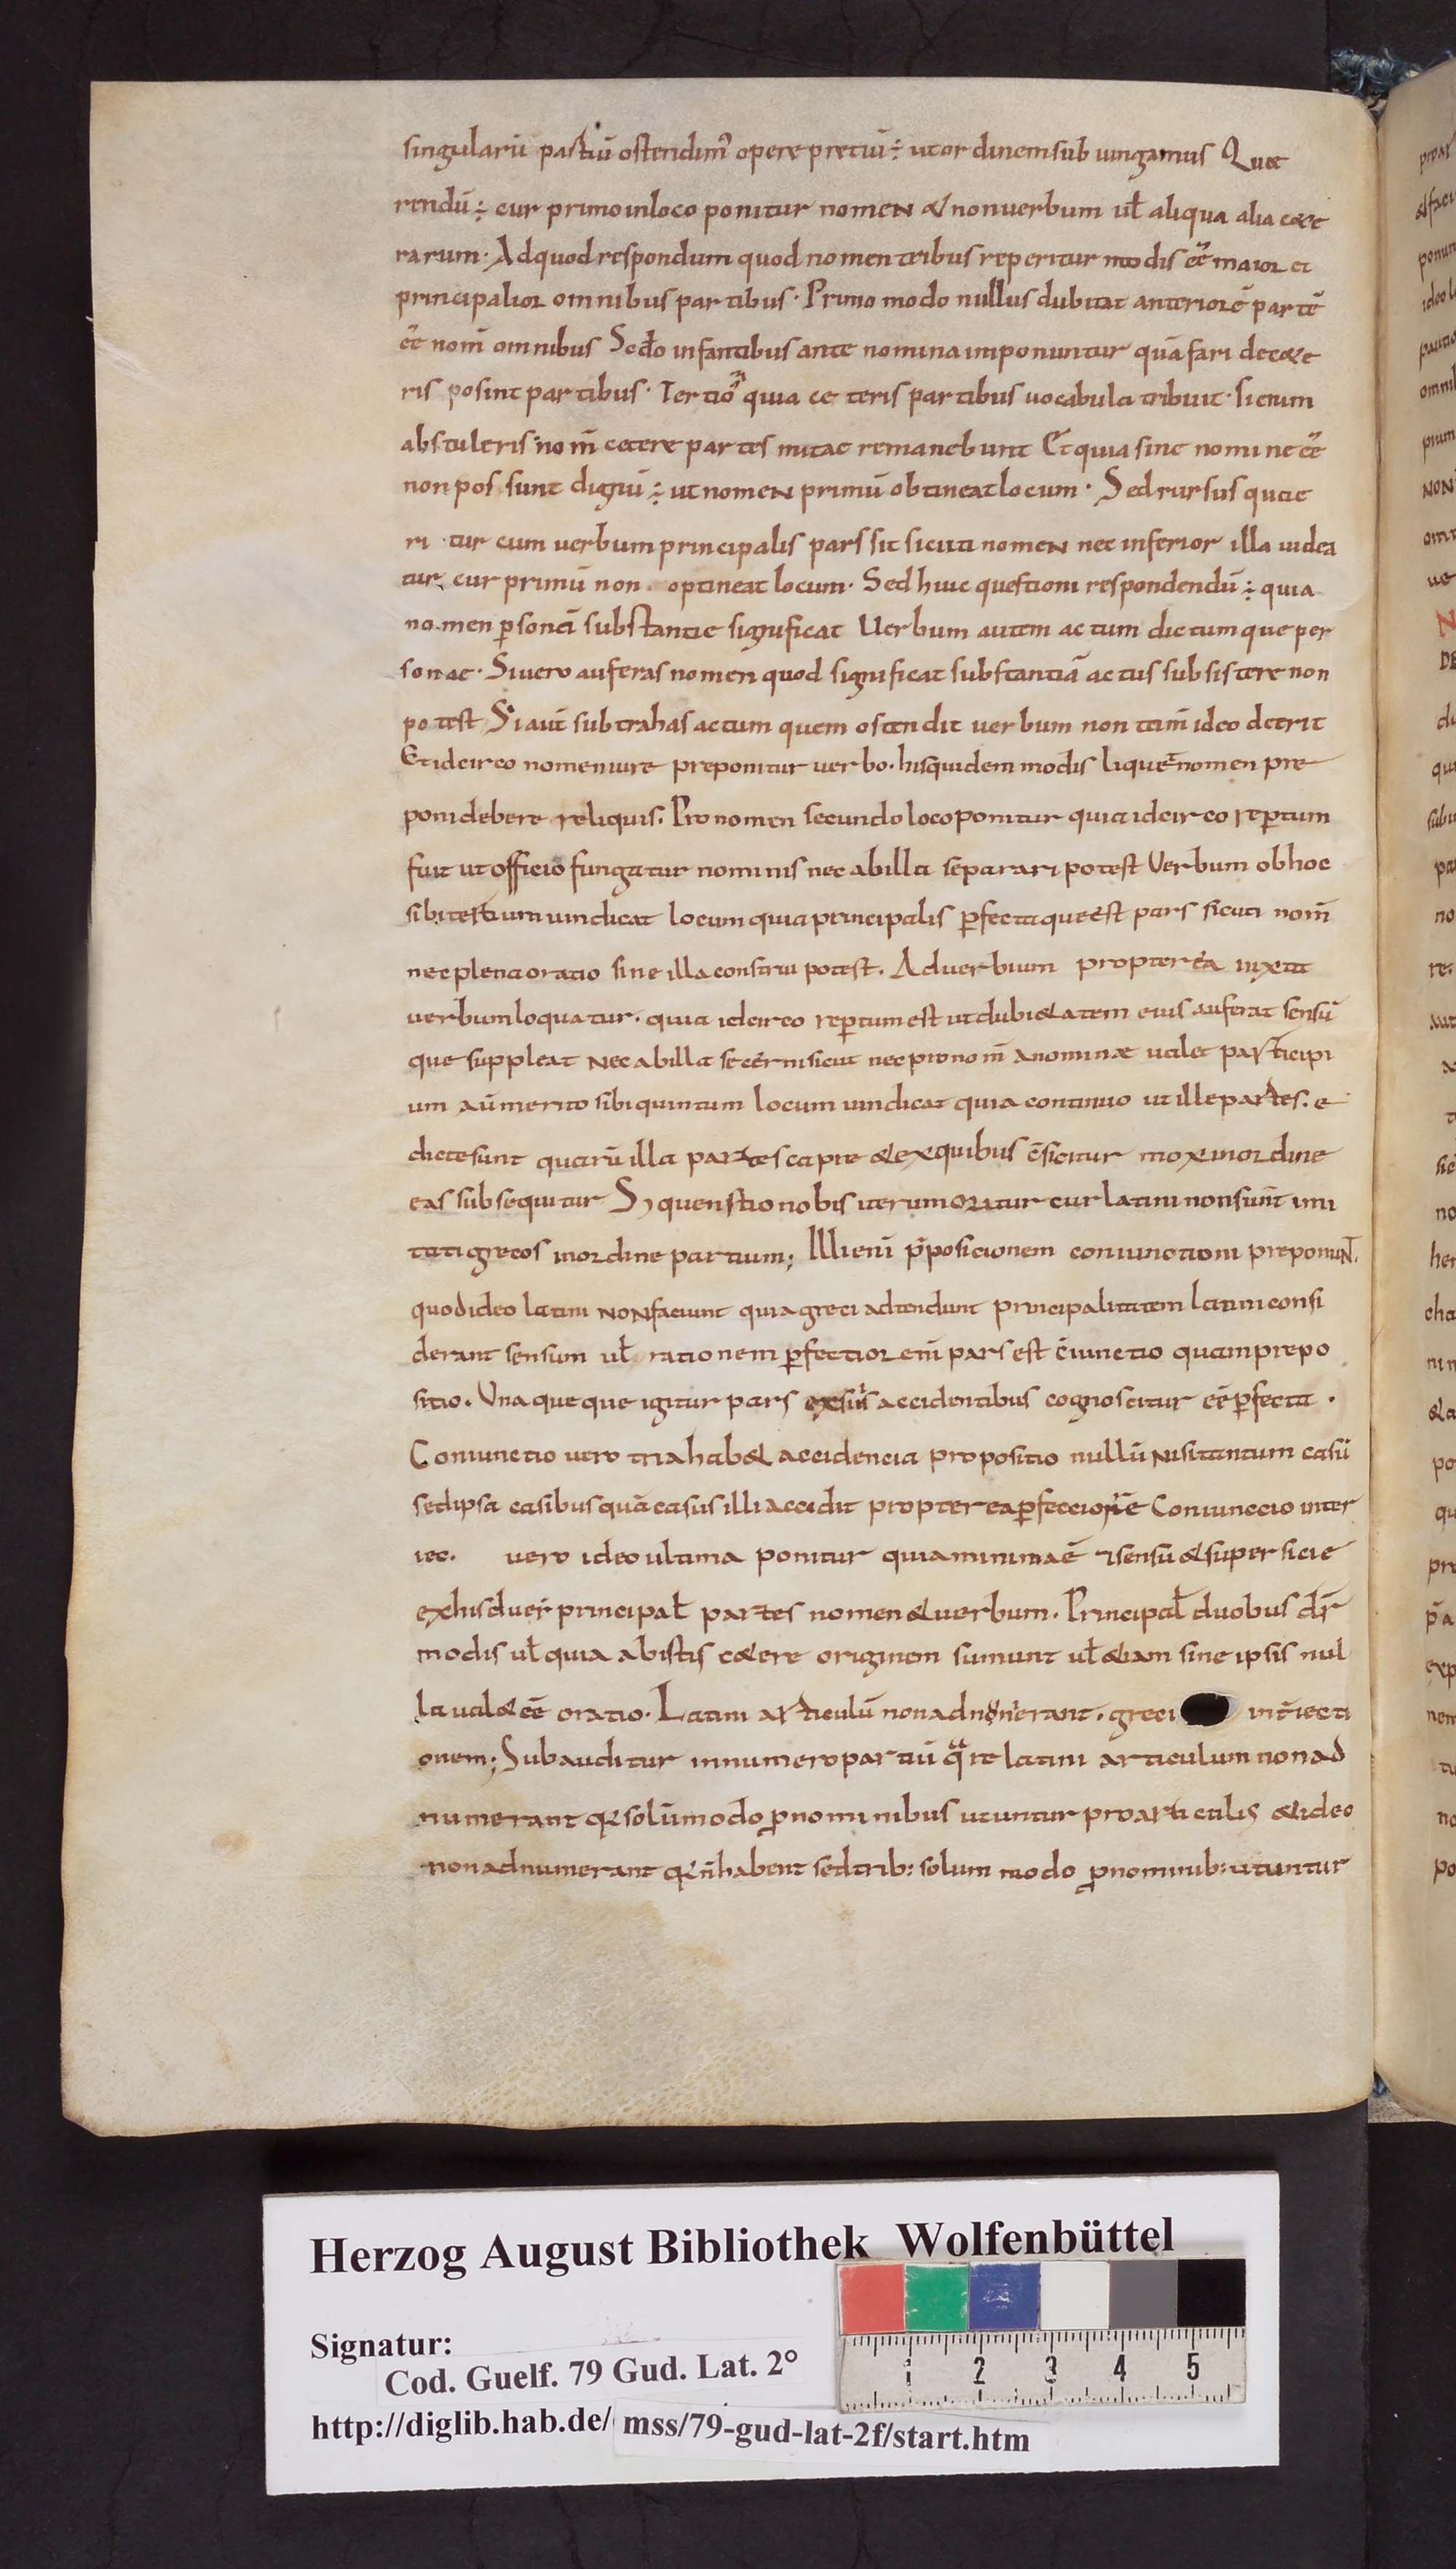 singularū partiū ostendim᾿ opere pretiū ÷ ut ordinem sub iungamus Quae
rendū ÷ cur primo inloco ponitur nomeN & nonuerbum ul̄ aliqua alia c&e
rarum · Adquod respondum quod nomen tribus reperitur modis ēē maior et
principalior omnibus partibus · Primo modo nullus dubitat anteriorē partē
ēē nom̄ omnibus Scđo infantibus ante nomina imponuntur quā fari de c&e
ris posint partibus · Tertio quia ceteris partibus uocabula tribuit · Si enim
abstuleris nom̄ cetere partes mutae remanebunt Et quia sine nomine ēē
non possunt dignū ÷ ut nomeN primū obtineat locum · Sed rursus quae
ri tur cum uerbum principalis pars sit sicuti nomeN nec inferior illa uidea
tur, cur primū non optineat locum · Sed huic questioni respondendū ÷ quia
nomen p̄sonā substantie significat Uerbum autem actum dictum que per
sonae · Si uero auferas nomen quod significat substantiā actus subsistere non
potest Si aut̄ subtrahas actum quem ostendit uerbum non tam̄ ideo deerit
Et idcirco nomen iure preponitur uerbo · hisquidem modis liqu& nomen pre
poni debere reliquis. Pronomen secundo loco ponitur quia idcirco rep̄tum
fuit ut officio fungatur nominis nec ab illa separari potest Verbum ob hoc
sibi tertium uindicat locum quia principalis p̄fectaque est pars sicuti nom̄
nec plena oratio sine illa construi potest. Aduerbium propterea iuxta
uerbum loquatur. quia idcirco rep̄tum est ut dubi&atem eius auferat sensū
que suppleat Nec ab illa secerni sicut nec pronom̄ a nomine ualet participi
um aū merito sibi quintum locum uindicat quia continuo ut ille partes. e
dicte sunt quarū illa partes capit & ex quibus c̄ficitur mox in ordine
eas subsequitur S; questio nobis iterum oritur cur latini non sunt imi
tati grecos in ordine partium; Illi enī p̄posicionem coniunctioni preponuNt.
quod ideo latini NON faciunt quia greci adtendunt principalitatem latini consi
derant sensum ul̄ rationem p̄fectior enī pars est c̄iunctio quam prepo
sitio. Una queque igitur pars ex suis accidentibus cognoscitur ēē p̄fecta ·
Coniunctio uero tria hab& accidencia propositio nullū Nisi tantum casū
sed ipsa casibus quā casus illi accidit propterea p̄feccior ē Coniunccio inter
iec. uero ideo ultima ponitur quia minima ē & sensu & superficie
ex his due s̄ principal̄ partes nomen & uerbum. Principal̄ duobus dr̄
modis ul̄ quia ab istis c&ere originem sumunt ul̄ &iam sine ipsis nul
la ual& ēē oratio. Latini articulū non adnumerant. greci int̄iecti
onem; Subauditur in numero partiū quare latini articulum non ad
numerant q& solūmodo p̄nominibus utuntur pro articulis & ideo
non adnumerant q& n̄ habent sed trib: solum modo p̄nominib: utuntur
Herzog August Bibliothek Wolfenbüttel
Signatur:
Cod. Guelf. 79 Gud. Lat. 2°
http://diglib.hab.de/ mss/79-gud-lat-2f/start.htm
1 2 3 4 5